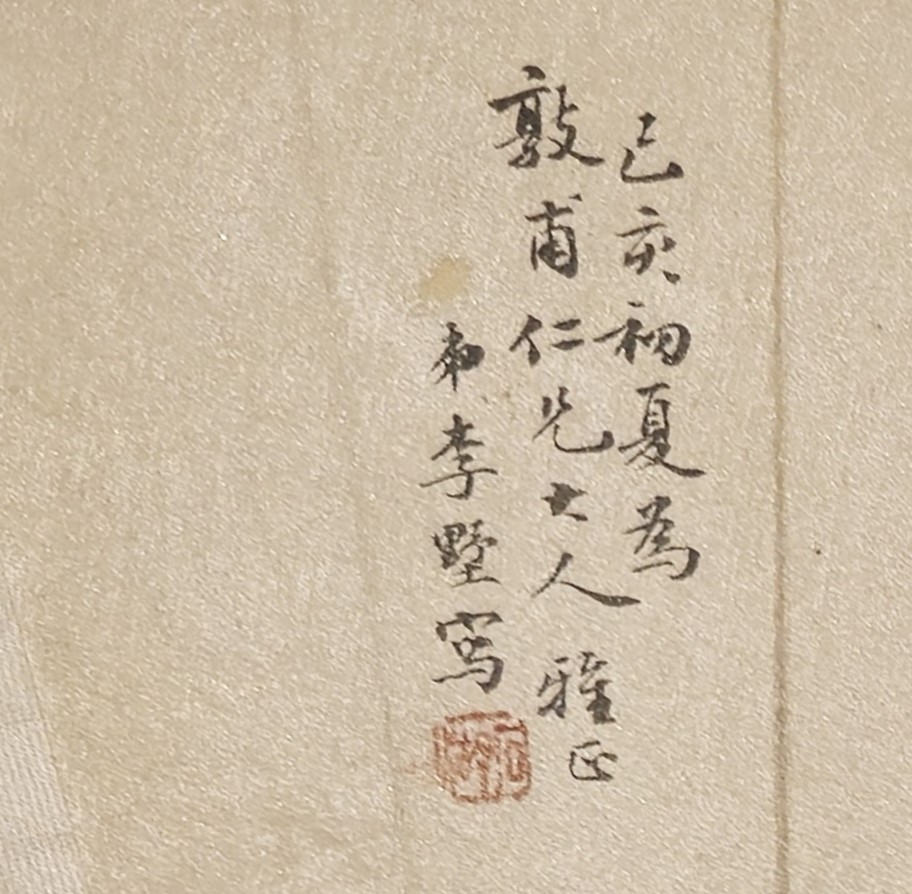 己亥初夏為
敦甫仁兄大人雅正
弟李墅寫